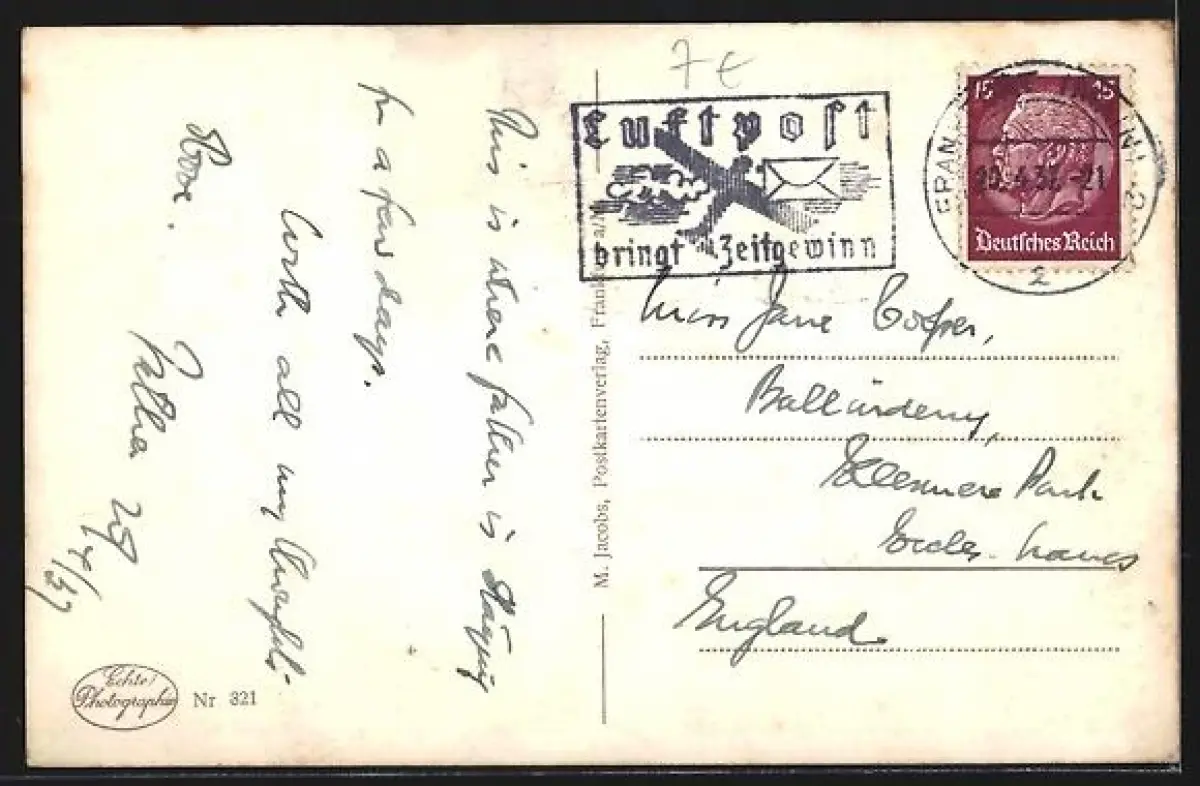 7 €
Luftpost
bringt Zeitgewinn
FRAN
2
15 15
Deutsches Reich
This is where father is staying
for a few days.
With all my thoughts
Father
M. Jacobs, Postkartenverlag, Frankfurt a/M
Miss Jane Cooper,
Ellesmere Park
Eccles. Lancs
England
Echte
Photographie
Nr 321